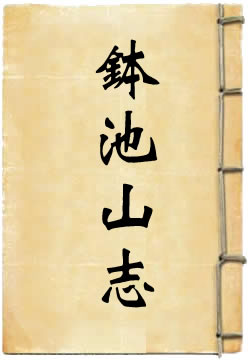 鉢池山志